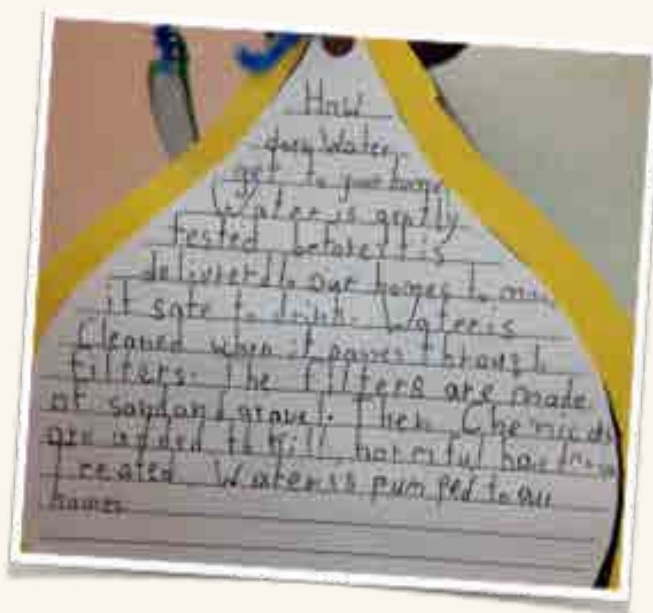 How
does Water
get to your home
Water is
tested before it is
delivered to our homes to
it safe to drink. Water is
Cleaned when it passes through
filters. The filters are made
of sand and gravel. Then Chemicals
are added to kill harmful
Treated Water is pumped to our
homes